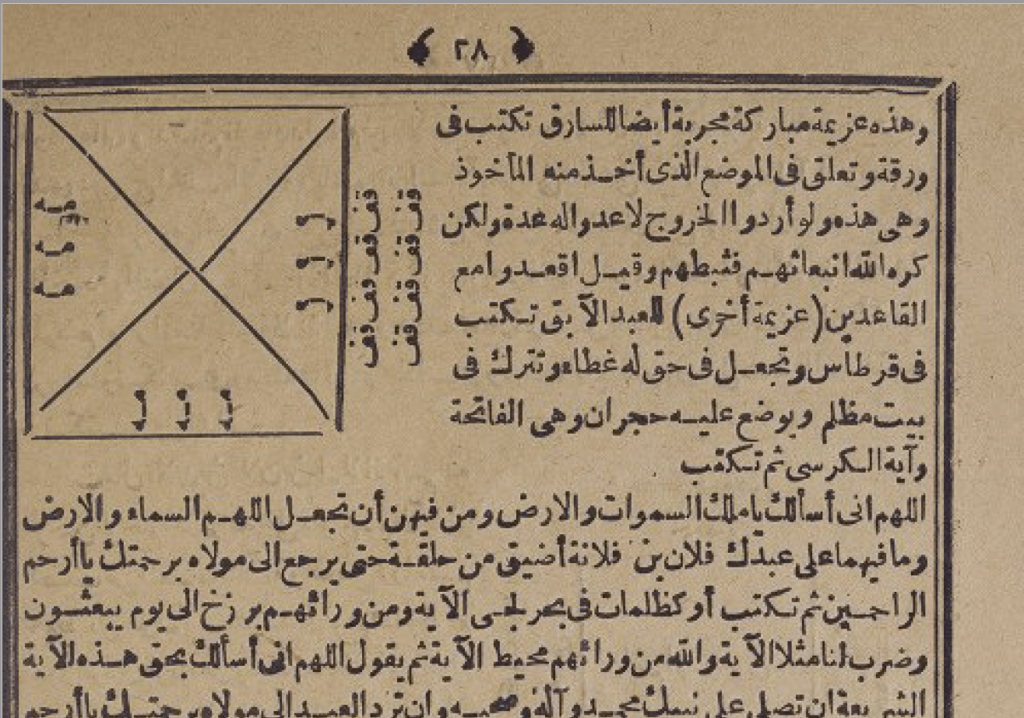 ٢٨
وهذه عزيمة مباركة مجربة أيضا للسارق تكتب فى
ورقة وتعلق فى الموضع الذى أخذ منه المأخوذ
وهى هذه ولو أرادوا الخروج لاعدوا له عدة ولكن
كره الله انبعاثهم فثبطهم وقيل اقعدوا مع
القاعدين (عزيمة أخرى) للعبد الآبق تكتب
فى قرطاس وتجعل فى حق له غطاء وتترك فى
بيت مظلم ويوضع عليه حجران وهى الفاتحة
وآية الكرسى ثم تكتب
قف قف قف قف
قف قف قف قف
مه
مه
مه
مه مه مه
اللهم انى أسألك ياملك السموات والارض ومن فيهن أن تجعل اللهم السماء والارض
وما فيهما على عبدك فلان بن فلانة أضيق من حلقة حتى يرجع الى مولاه برحمتك ياأرحم
الراحمين ثم تكتب أو كظلمات فى بحر لجى الآية ومن ورائهم برزخ الى يوم يبعثون
وضرب لنا مثلا الآية والله من ورائهم محيط الآية ثم يقول اللهم انى أسألك بحق هذه الآية
الشريعة ان تصلى على نبيك محمد وآله وصحبه وان ترد العبد الى مولاه برحمتك ياأرحم